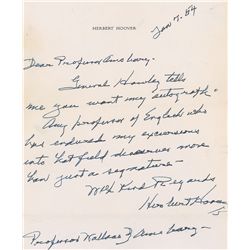 HERBERT HOOVER
Jan 7. 54
Dear Professor Armsbary:
General Hawley tells
me you want my autograph.
Any professor of English who
has endured my excursions
into that field deserves more
than just a signature—
With Kind Regards
Herbert Hoover
Professor Wallace